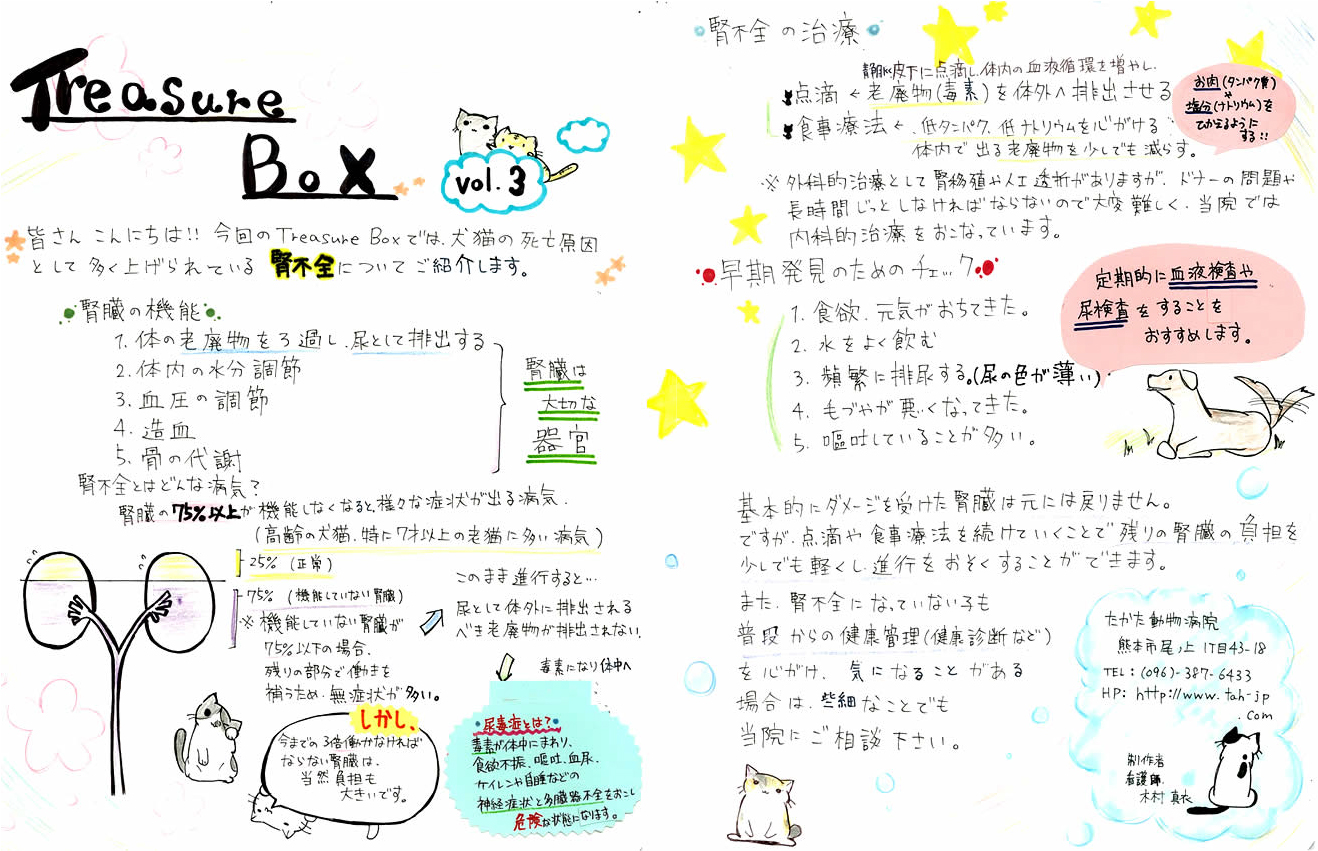 Treasure
Box
vol.3
皆さんこんにちは!! 今回のTreasure Boxでは、犬猫の死亡原因
として多く上げられている 腎不全についてご紹介します。
腎臓の機能
1. 体の老廃物をろ過し、尿として排出する
2. 体内の水分調節
3. 血圧の調節
4. 造血
5. 骨の代謝
腎臓は
大切な
器官
腎不全とはどんな病気?
腎臓の75%以上が機能しなくなると、様々な症状が出る病気.
(高齢の犬猫、特に7才以上の老猫に多い病気)
25% (正常)
75% (機能していない腎臓)
※機能していない腎臓が
75%以下の場合、
残りの部分で働きを
補うため、無症状が多い。
このまま進行すると…
尿として体外に排出される
べき老廃物が排出されない.
毒素になり体中へ
しかし、
今までの3倍働かなければ
ならない腎臓は、
当然負担も
大きいです。
尿毒症とは?
毒素が体中にまわり、
食欲不振、嘔吐、血尿、
ケイレンや昏睡などの
神経症状と多臓器不全をおこし
危険な状態になります。
腎不全の治療
静脈や皮下に点滴し、体内の血液循環を増やし、
点滴 ← 老廃物(毒素)を体外へ排出させる
食事療法 ← 低タンパク、低ナトリウムを心がける
体内で出る老廃物を少しでも減らす。
お肉(タンパク質)
や
塩分(ナトリウム)を
ひかえるように
する!!
※ 外科的治療として腎移殖や人工透析がありますが、ドナーの問題や
長時間じっとしなければならないので大変難しく、当院では
内科的治療をおこなっています。
早期発見のためのチェック
1. 食欲、元気がおちてきた。
2. 水をよく飲む
3. 頻繁に排尿する。(尿の色が薄い)
4. 毛づやが悪くなってきた。
5. 嘔吐していることが多い。
定期的に血液検査や
尿検査をすることを
おすすめします。
基本的にダメージを受けた腎臓は元には戻りません。
ですが、点滴や食事療法を続けていくことで残りの腎臓の負担を
少しでも軽くし、進行をおそくすることができます。
また、腎不全になっていない子も
普段からの健康管理(健康診断など)
を心がけ、気になることがある
場合は、些細なことでも
当院にご相談下さい。
たかた動物病院
熊本市尾ノ上1丁目43-18
TEL: (096)-387-6433
HP: http://www.tah-jp
.com
制作者
看護師
木村 真衣